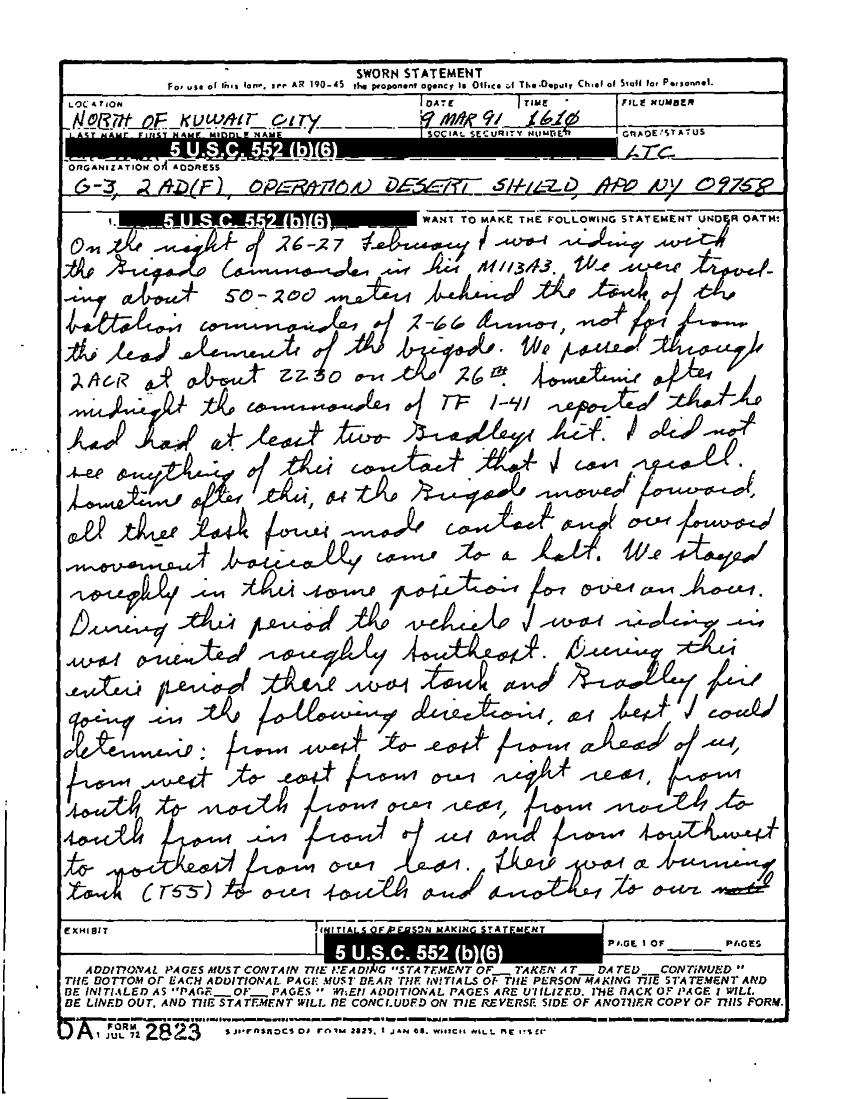 SWORN STATEMENT
For use of this form, see AR 190-45 the proponent agency is Office of The Deputy Chief of Staff for Personnel.
LOCATION DATE TIME FILE NUMBER
NORTH OF KUWAIT CITY 9 MAR 91 1610
LAST NAME, FIRST NAME, MIDDLE NAME SOCIAL SECURITY NUMBER GRADE/STATUS
5 U.S.C. 552 (b)(6) LTC
ORGANIZATION OR ADDRESS
G-3, 2 AD(F), OPERATION DESERT SHIELD, APO NY 09758
I, 5 U.S.C. 552 (b)(6) WANT TO MAKE THE FOLLOWING STATEMENT UNDER OATH:
On the night of 26-27 February I was riding with
the Brigade Commander in his M113A3. We were travel-
ing about 50-200 meters behind the tank of the
battalion commander of 2-66 Armor, not far from
the lead elements of the brigade. We passed through
2ACR at about 2230 on the 26th. Sometime after
midnight the commander of TF 1-41 reported that he
had had at least two Bradleys hit. I did not
see anything of this contact that I can recall.
Sometime after this, as the Brigade moved forward,
all three task forces made contact and our forward
movement basically came to a halt. We stayed
roughly in this same position for over an hour.
During this period the vehicle I was riding in
was oriented roughly southeast. During this
entire period there was tank and Bradley fire
going in the following directions, as best I could
determine: from west to east from ahead of us,
from west to east from our right rear, from
south to north from our rear, from north to
south from in front of us and from southwest
to northeast from our rear. There was a burning
tank (T55) to our south and another to our
EXHIBIT INITIALS OF PERSON MAKING STATEMENT
5 U.S.C. 552 (b)(6) PAGE 1 OF ____ PAGES
ADDITIONAL PAGES MUST CONTAIN THE HEADING "STATEMENT OF__ TAKEN AT__ DATED__ CONTINUED "
THE BOTTOM OF EACH ADDITIONAL PAGE MUST BEAR THE INITIALS OF THE PERSON MAKING THE STATEMENT AND
BE INITIALED AS "PAGE__OF__PAGES " WHEN ADDITIONAL PAGES ARE UTILIZED, THE BACK OF PAGE 1 WILL
BE LINED OUT, AND THE STATEMENT WILL BE CONCLUDED ON THE REVERSE SIDE OF ANOTHER COPY OF THIS FORM.
DA FORM 1 JUL 72 2823 SUPERSEDES DA FORM 2823, 1 JAN 68, WHICH WILL BE USED